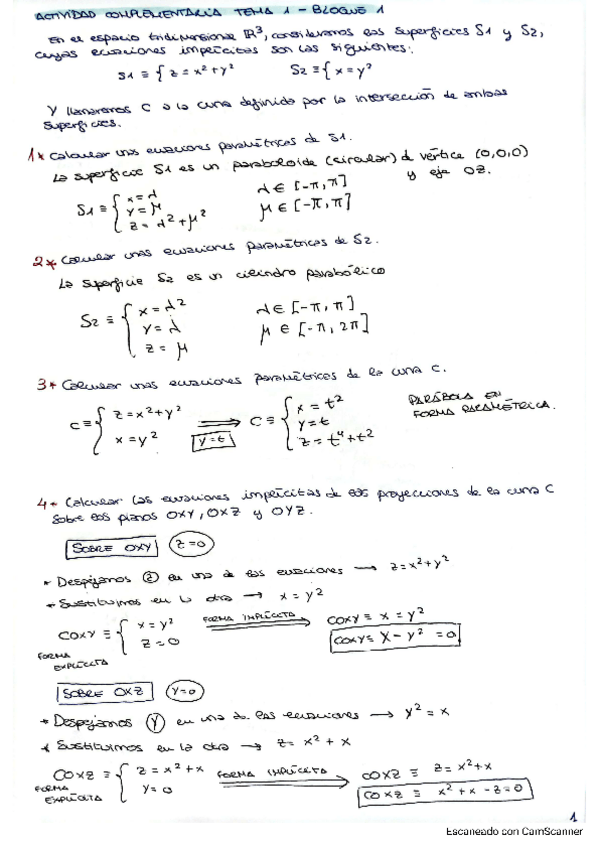 ACTIVIDAD COMPLEMENTARIA TEMA 1 - BLOQUE 1
En el espacio tridimensional ℝ³, consideramos las superficies S1 y S2,
cuyas ecuaciones implícitas son las siguientes:
S1 ≡ { z = x² + y²    S2 ≡ { x = y²
Y llamaremos C a la curva definida por la intersección de ambas
superficies.
1* Calcular unas ecuaciones paramétricas de S1.
La superficie S1 es un paraboloide (circular) de vértice (0,0,0)
y eje OZ.
S1 ≡ { x = λ    λ ∈ [-π, π]
y = μ    μ ∈ [-π, π]
z = λ² + μ²
2* Calcular unas ecuaciones paramétricas de S2.
La superficie S2 es un cilindro parabólico
S2 ≡ { x = λ²    λ ∈ [-π, π]
y = λ    μ ∈ [-π, 2π]
z = μ
3* Calcular unas ecuaciones paramétricas de la curva C.
C ≡ { z = x² + y²    ⟹    C ≡ { x = t²    PARÁBOLA EN
x = y²    y = t    y = t    FORMA PARAMÉTRICA.
z = t⁴ + t²
4* Calcular las ecuaciones implícitas de las proyecciones de la curva C
sobre los planos OXY, OXZ y OYZ.
SOBRE OXY    z = 0
* Despejamos z en una de las ecuaciones → z = x² + y²
* Sustituimos en la otra → x = y²
COXY ≡ { x = y²    FORMA IMPLÍCITA    COXY ≡ x = y²
z = 0    COXY ≡ x - y² = 0
FORMA
EXPLÍCITA
SOBRE OXZ    y = 0
* Despejamos y en una de las ecuaciones → y² = x
* Sustituimos en la otra → z = x² + x
COXZ ≡ { z = x² + x    FORMA IMPLÍCITA    COXZ ≡ z = x² + x
FORMA    y = 0    COXZ ≡ x² + x - z = 0
EXPLÍCITA
1
Escaneado con CamScanner